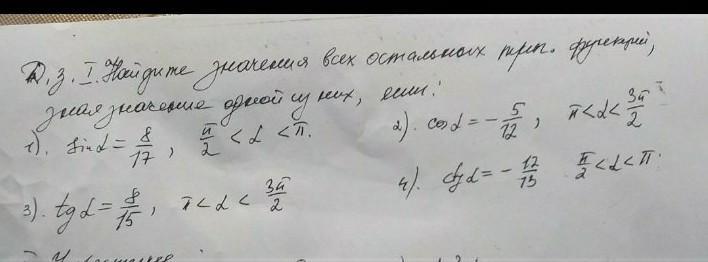 Д.з. I. Найдите значения всех остальных триг. функций,
зная значение одной из них, если:
1). sin α = 8/17, π/2 < α < π.
2). cos α = -5/12, π < α < 3π/2
3). tg α = 8/15, π < α < 3π/2
4). ctg α = -12/13 π/2 < α < π.